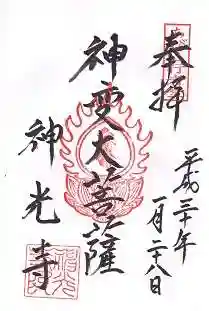 奉拝
平成三十年
一月二十八日
神変大菩薩
神光寺